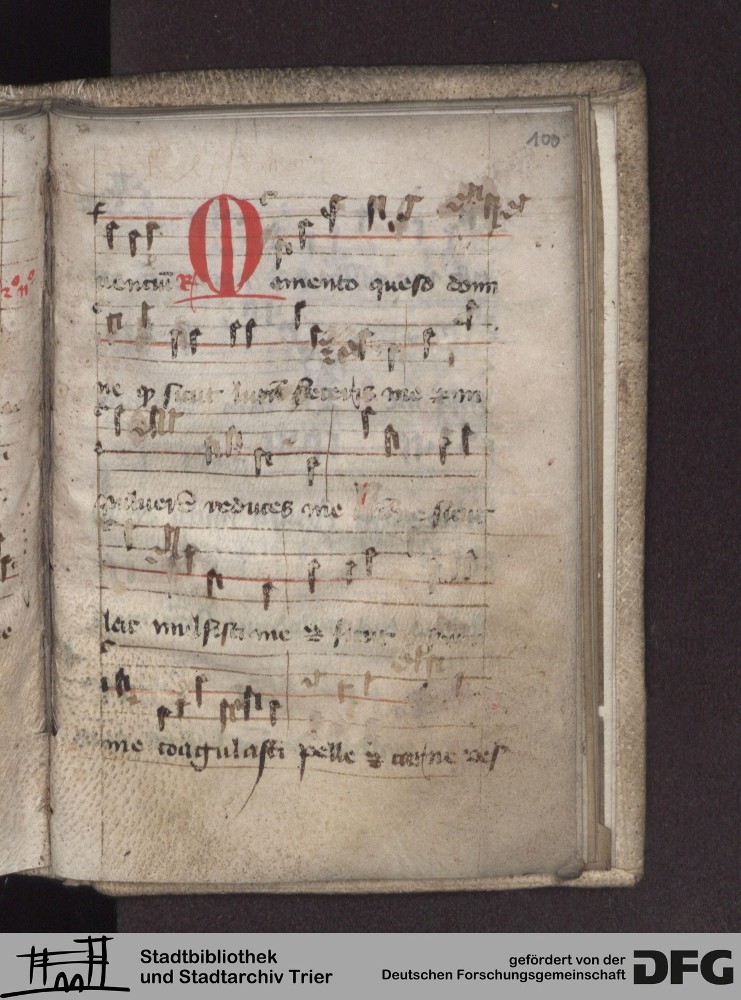 100
R Memento queso domi
ne qp sicut lutū feceris me & in
puluerē reduces me
lac mulsisti me & sicut
me coagulasti pelle & carne ves
Stadtbibliothek
und Stadtarchiv Trier
gefördert von der
Deutschen Forschungsgemeinschaft
DFG